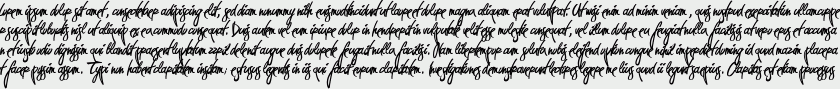 Lorem ipsum dolor sit amet, consectetuer adipiscing elit, sed diam nonummy nibh euismod tincidunt ut laoreet dolore magna aliquam erat volutpat. Ut wisi enim ad minim veniam, quis nostrud exercitation ullamcorper
suscipit lobortis nisl ut aliquip ex ea commodo consequat. Duis autem vel eum iriure dolor in hendrerit in vulputate velit esse molestie consequat, vel illum dolore eu feugiat nulla facilisis at vero eros et accumsan
et iusto odio dignissim qui blandit praesent luptatum zzril delenit augue duis dolore te feugait nulla facilisi. Nam liber tempor cum soluta nobis eleifend option congue nihil imperdiet doming id quod mazim placerat
facer possim assum. Typi non habent claritatem insitam; est usus legentis in iis qui facit eorum claritatem. Investigationes demonstraverunt lectores legere me lius quod ii legunt saepius. Claritas est etiam processus